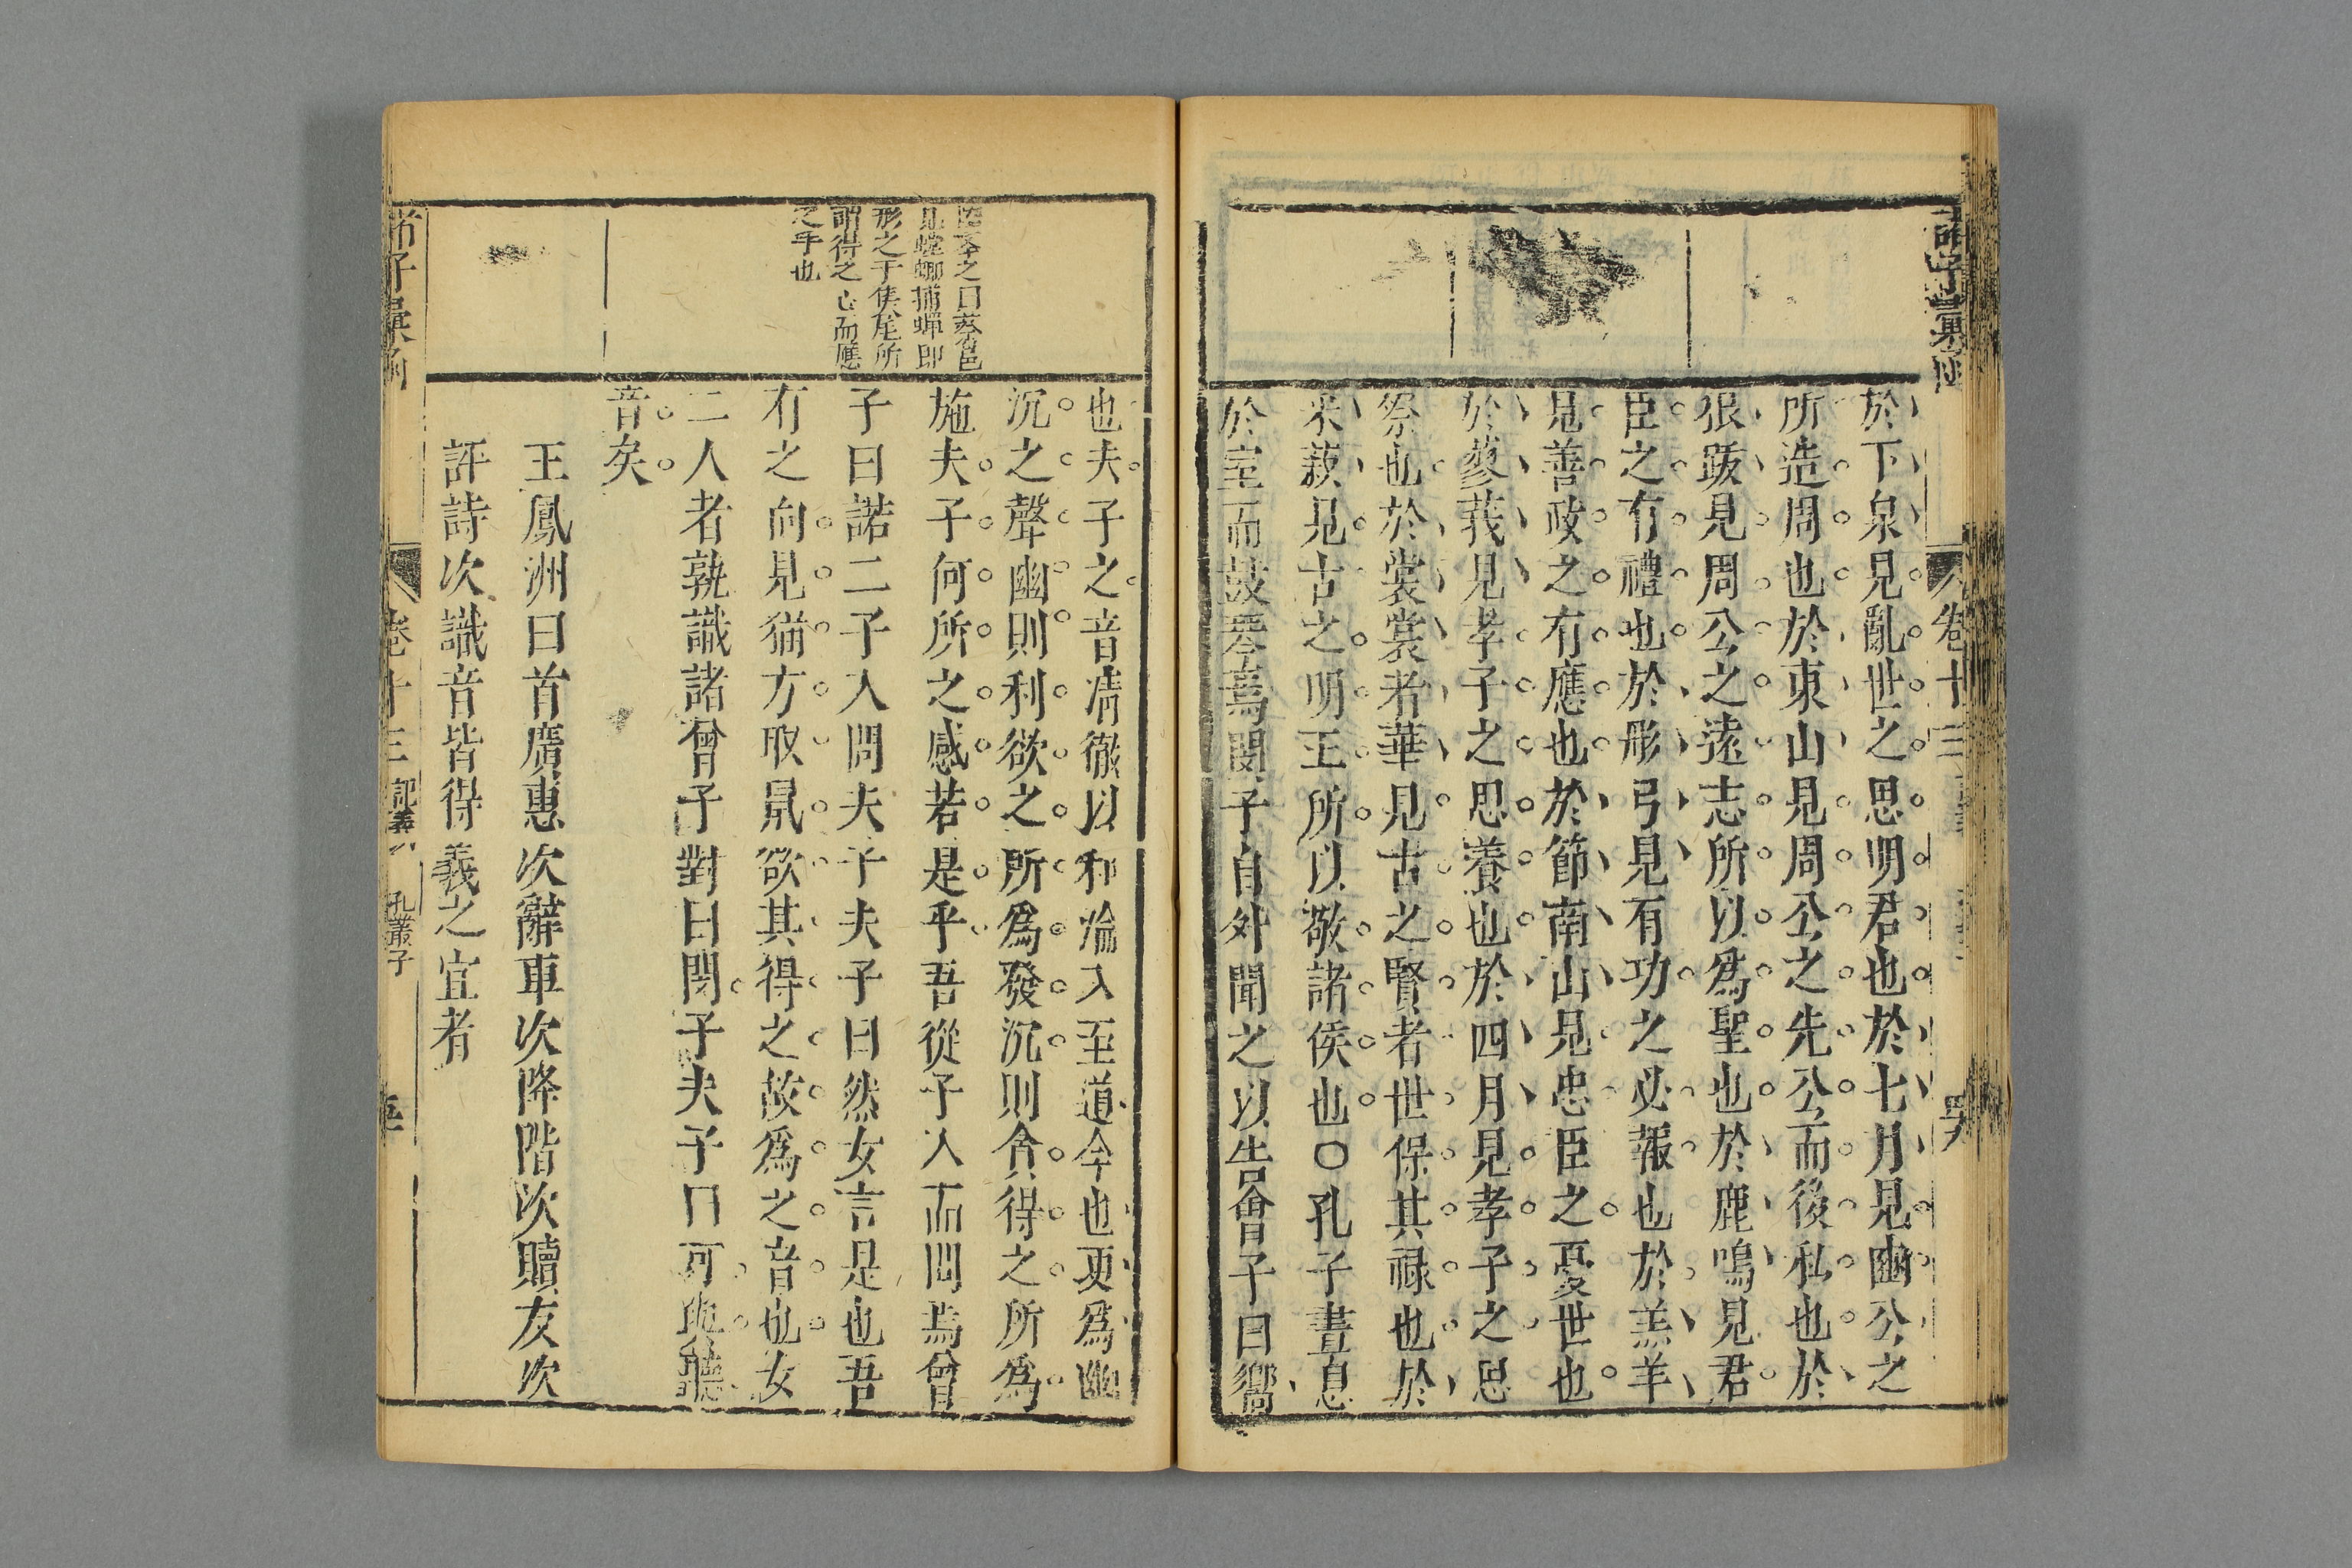 諸子彙函
卷十三
於下泉見亂世之思明君也於七月見豳公之
所造周也於東山見周公之先公而後私也於
狼跋見周公之遠志所以爲聖也於鹿鳴見君
臣之有禮也於彤弓見有功之必報也於羔羊
見善政之有應也於節南山見忠臣之憂世也
於蓼莪見孝子之思養也於四月見孝子之思
祭也於裳裳者華見古之賢者世保其祿也於
采菽見古之明王所以敬諸侯也○孔子晝息
於室而鼓琴焉閔子自外聞之以告曾子曰嚮
也夫子之音清徹以和淪入至道今也更爲幽
沉之聲幽則利欲之所爲發沉則貪得之所爲
施夫子何所之感若是乎吾從子入而問焉曾
子曰諾二子入問夫子夫子曰然女言是也吾
有之向見猫方取鼠欲其得之故爲之音也女
二人者孰識諸曾子對曰閔子夫子曰可與聽
音矣
王鳳洲曰首廣惠次辭車次降階次贖友次
評詩次識音皆得義之宜者
之曰蔡邕
見螳螂捕蟬即
形之于
所
謂得之心而應
之手也
諸子彙函
卷十三
記義
孔叢子